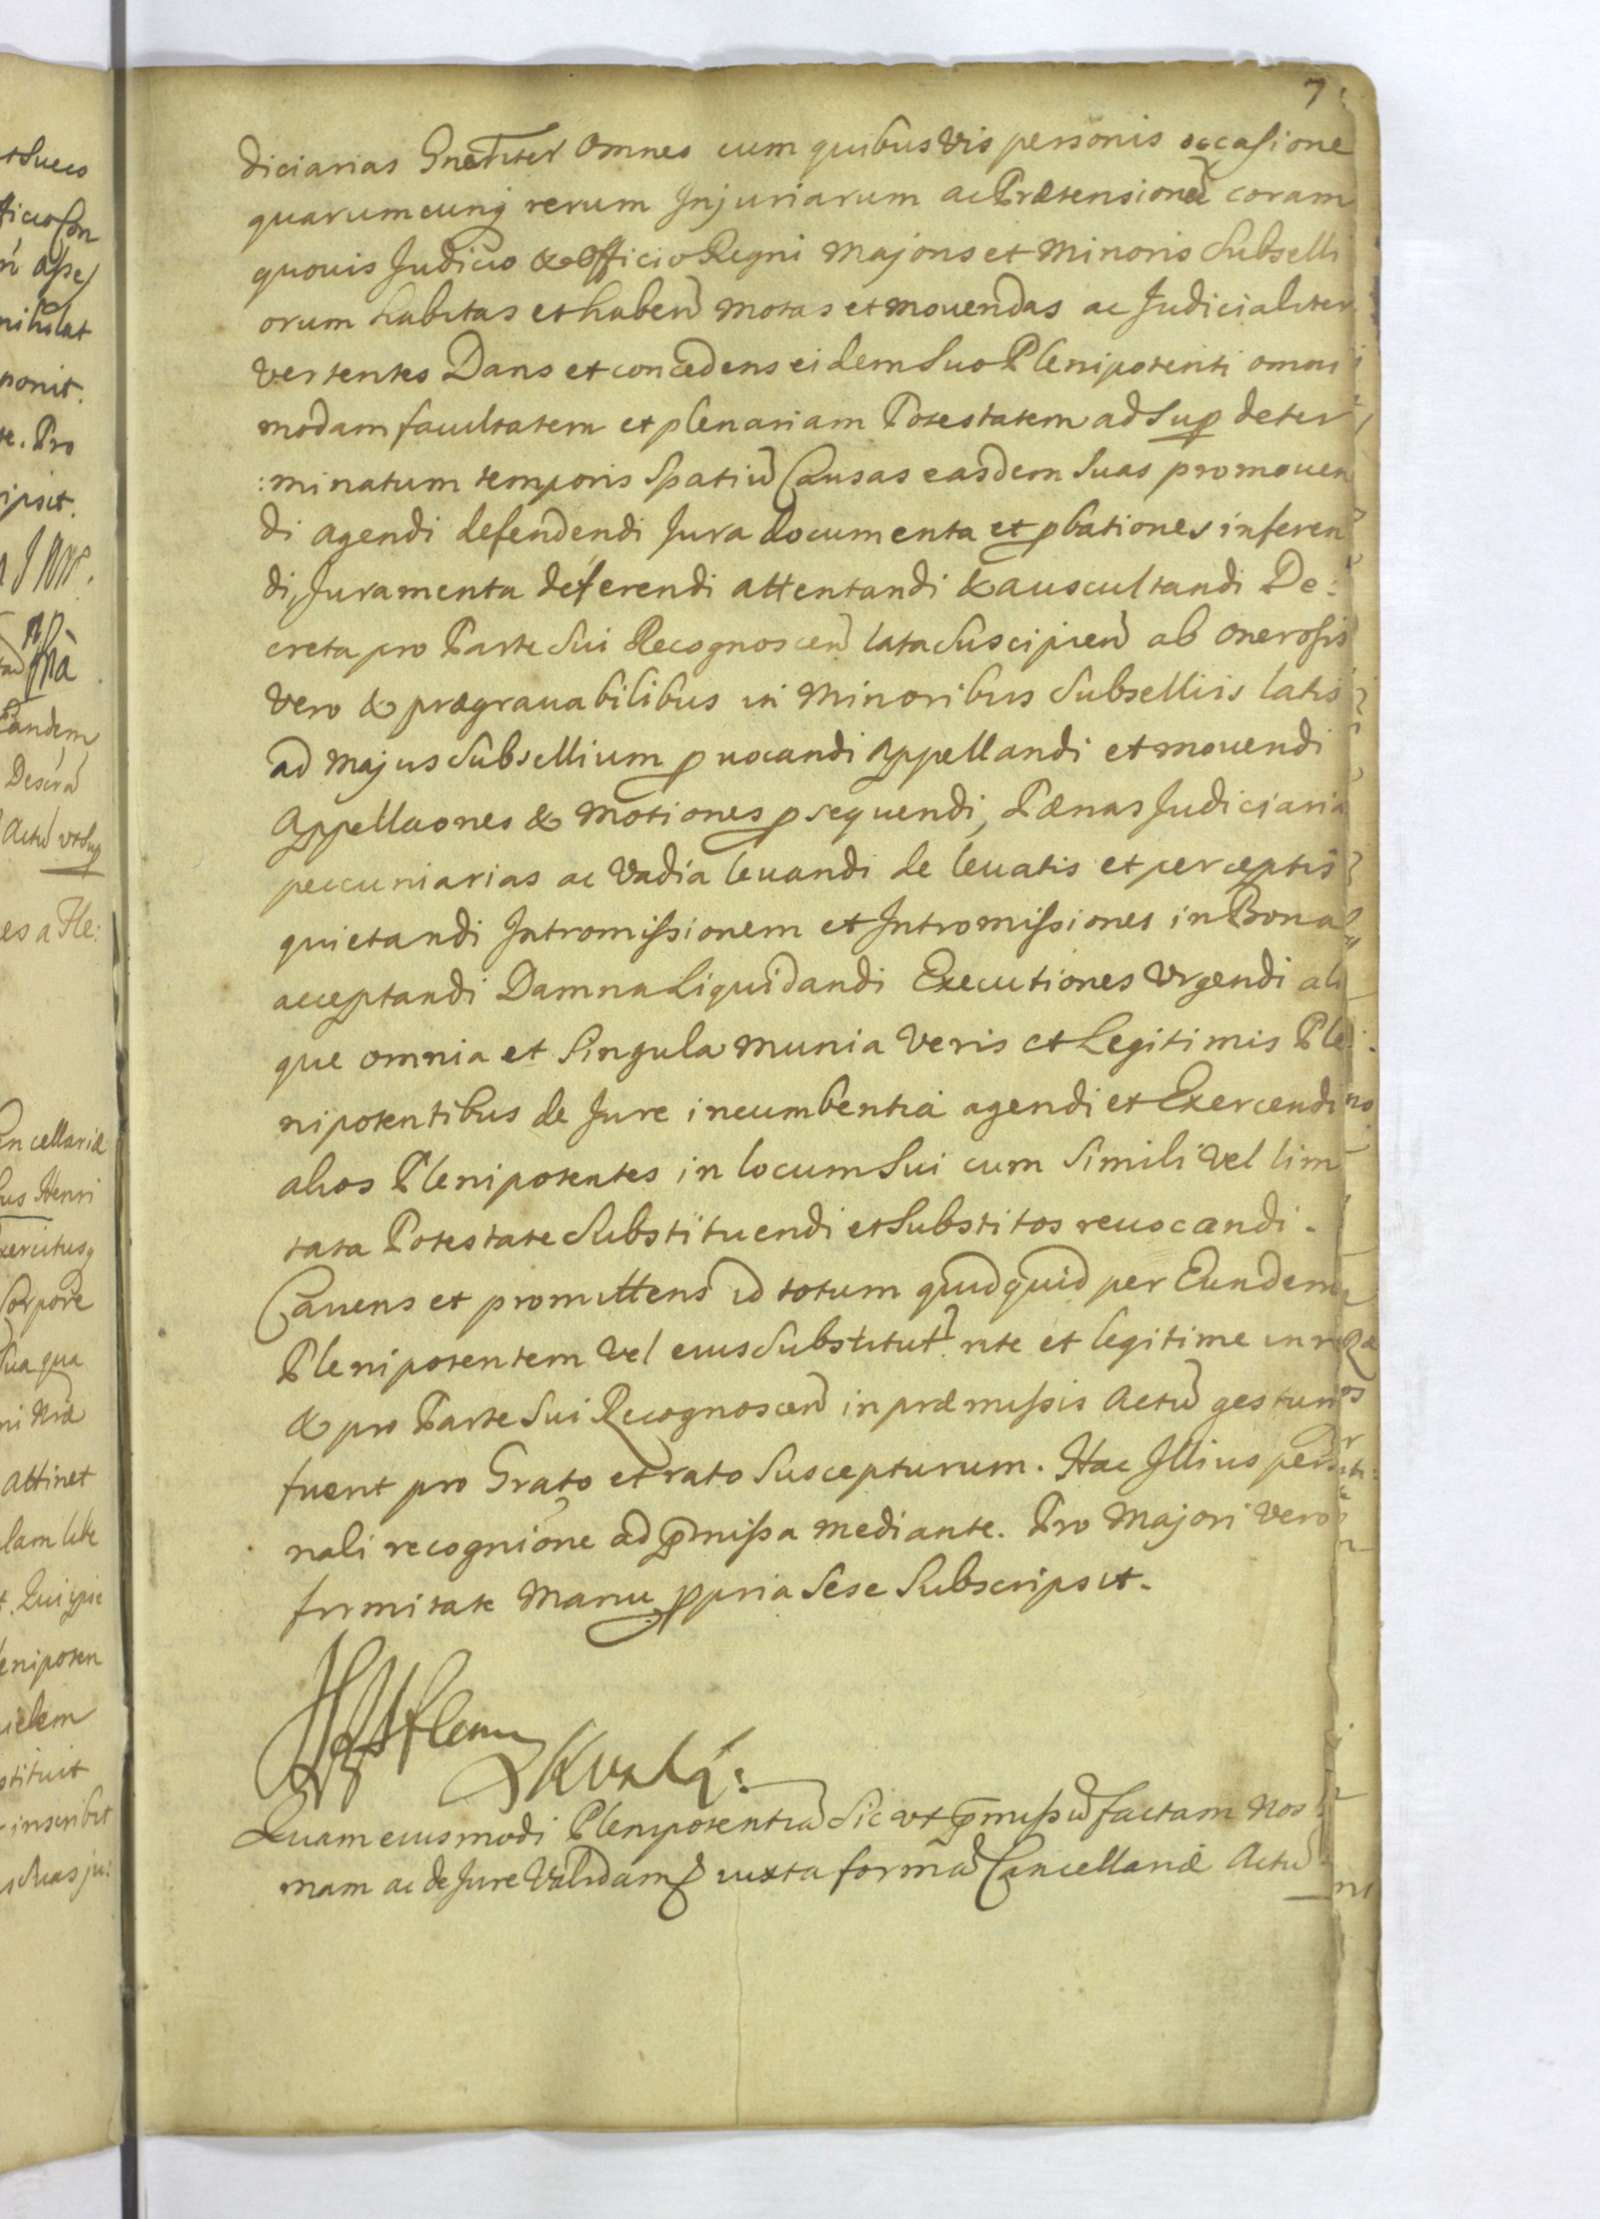 7
diciarias Gnēaliter Omnes cum quibus vis personis occasione
quarumcunq rerum Injuriarum ac Prætensionū coram
quouis Judicio & Officio Regni Majoris et Minoris Subselli
orum habitas et habend motas et mouendas ac Judicialiter
vertentes Dans et concedens eidem Suo Plenipotenti omni
modam facultatem et plenariam Potestatem ad Sup deter
:minatum temporis Spatiū Causas easdem Suas promouen
di agendi defendendi Jura documenta et pbationes inferen
di, Juramenta deferendi attentandi & auscultandi De:
creta pro Parte Sui Recognoscen lata Suscipien ab onerosis
vero & prægrauabilibus in Minoribus Subselliis latis
ad Majus Subsellium puocandi Appellandi et mouendi
Appellaones & Motiones psequendi, Pænas Judiciaria
peccuniarias ac Vadia leuandi de leuatis et perceptis
quietandi Intromissionem et Intromissiones in Bona
acceptandi Damna Liquidandi Executiones Urgendi ali
que omnia et Singula munia veris et Legitimis Ple
nipotentibus de Jure incumbentia agendi et Exercendi
alios Plenipotentes in locum Sui cum Simili vel lim
tata Potestate Substituendi et Substitos reuocandi.
Cauens et promittens id totum quidquid per Eundem
Plenipotentem vel eius Substitut rite et legitime in r
& pro Parte Sui Recognoscen in præmissis Actū gestum
fuerit pro Grato et rato Suscepturum. Hac Illius perso
nali recognione ad pmissa mediante. Pro Majori vero
firmitate Manu ppria Sese Subscripsit.
Quam eiusmodi Plenipotentiā Sic ut pmissū factam Nos
mam ac de Jure Validam iuxta formā Cancellariæ Actū